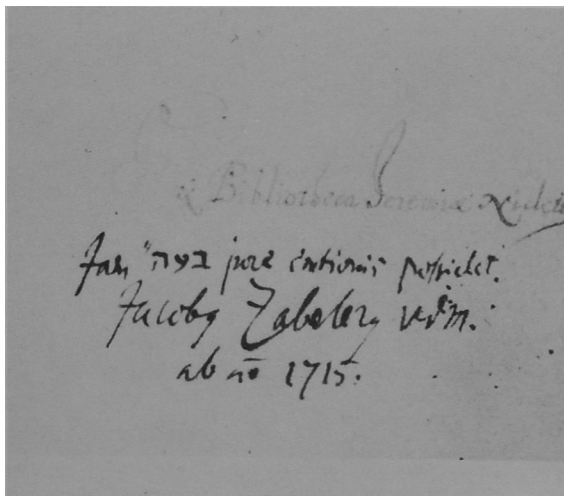 Bibliotheca Jeremiæ
Jam בעה jure emtionis possidet.
Jacobg Zabelerg vdm.
ab ao 1715.